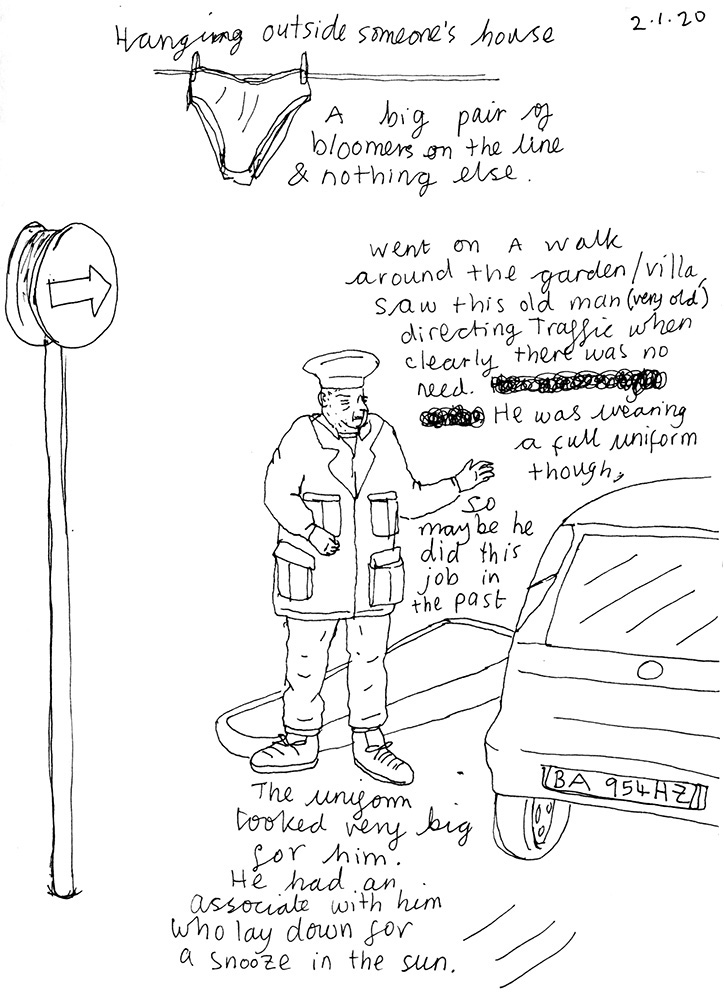 Hanging outside someone's house
2.1.20
A big pair of
bloomers on the line
& nothing else.
went on A walk
around the garden/villa,
saw this old man (very old)
directing Traffic when
clearly there was no
need.
He was wearing
a full uniform
though,
so
maybe he
did this
job in
the past
BA 954HZ
The uniform
looked very big
for him.
He had an
associate with him
who lay down for
a snooze in the sun.